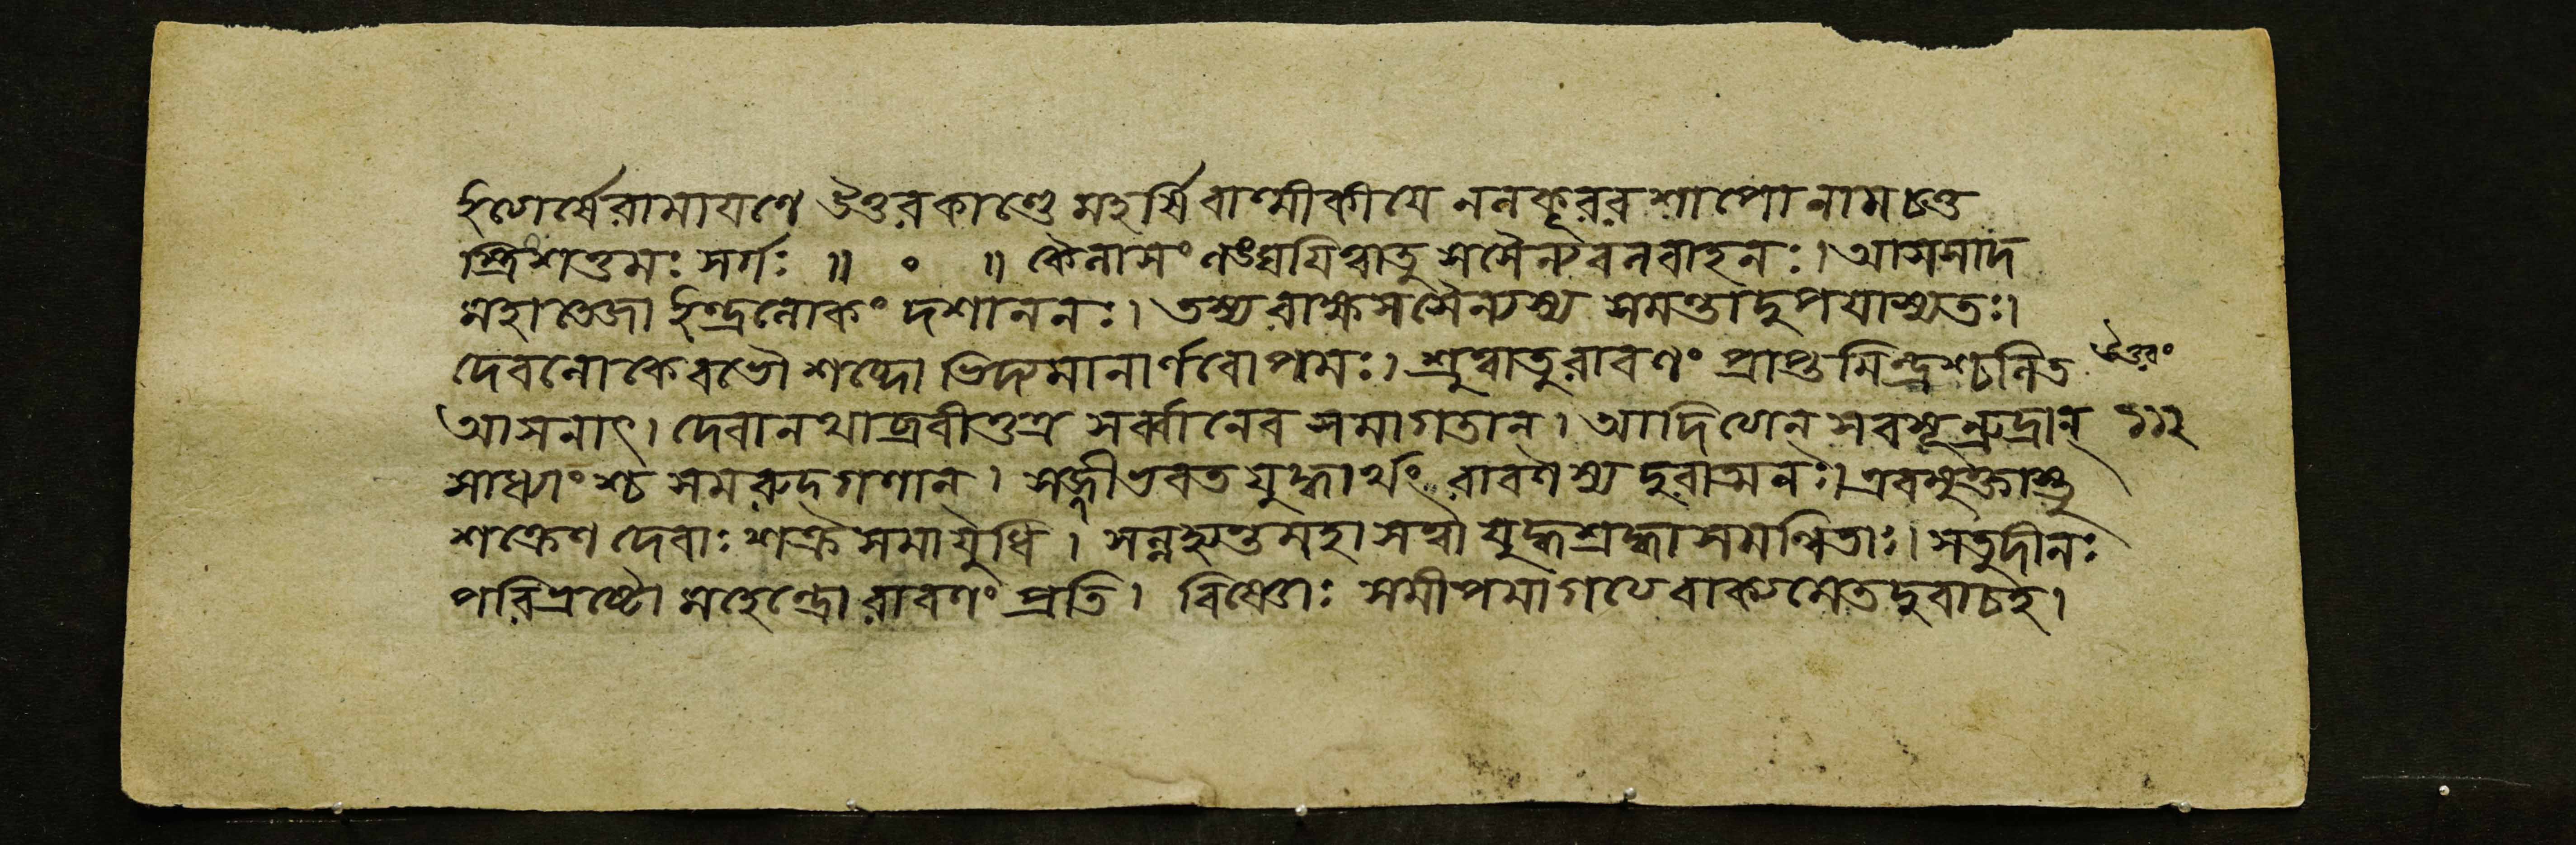 ইত্যার্ষে রামায়ণে উত্তরকাণ্ডে মহর্ষি বাল্মীকীয়ে নলকূবর শাপো নাম চতু
স্ত্রিংশত্তমঃ সর্গঃ ॥ ० ॥ কৈলাসং লঙ্ঘয়িত্বাতু সসৈন্যবলবাহনঃ। আসসাদ
মহাতেজা ইন্দ্রলোকং দশাননঃ। তস্য রাক্ষসসৈন্যস্য সমন্তাদুপযাস্যতঃ।
দেবলোকে বভৌ শব্দো ভিদ্যমানার্ণবোপমঃ। শ্রুত্বাতু রাবণং প্রাপ্তমিন্দ্রশ্চলিত
আসনাৎ। দেবানথাব্রবীত্তত্র সর্ব্বানেব সমাগতান। আদিত্যান সবসূন্রুদ্রান্
সাধ্যাংশ্চ সমরুদগণান্। সজ্জীভবত যুদ্ধার্থং রাবণস্য দুরাত্মনঃ। এবমুক্তাস্তু
শক্রেণ দেবাঃ শক্রসমা যুধি। সন্নহ্যন্ত মহাসত্বা যুদ্ধশ্রদ্ধাসমন্বিতাঃ। সতুদীনঃ
পরিত্রষ্টো মহেন্দ্রো রাবণং প্রতি। বিষ্ণোঃ সমীপমাগত্য বাক্যমেতদুবাচহ।
উত্তরং
১১২